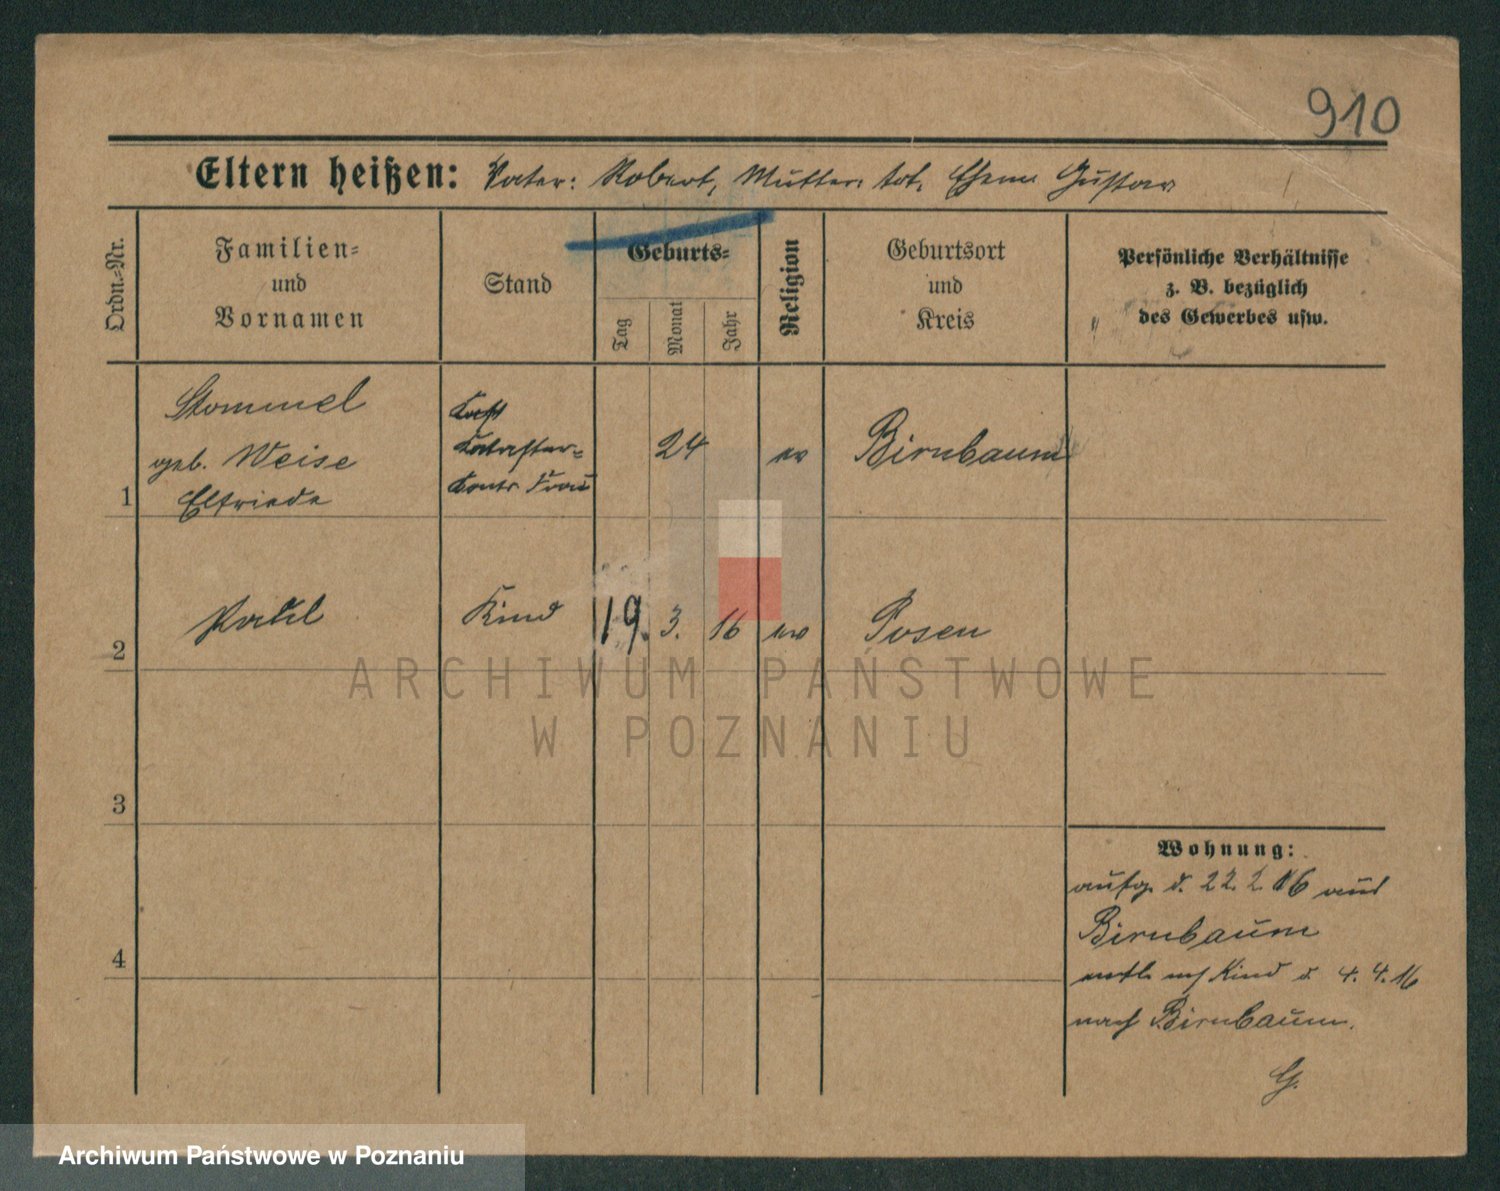 910
Eltern heißen: Vater: Robert, Mutter: tot. Ehem Gustav
Ordn.-Nr.
Familien-
und
Vornamen
Stand
Geburts-
Tag
Monat
Jahr
Religion
Geburtsort
und
Kreis
Persönliche Verhältnisse
z. B. bezüglich
des Gewerbes usw.
1
Stommel
geb. Weise
Elfriede
Kataster-
Kontr Frau
24
ev
Birnbaum
2
Paul
Kind
19. 3. 16
ev
Posen
3
4
Wohnung:
aufg. d. 22. 2. 16 aus
Birnbaum
entl. Kind d. 4. 4. 16
nach Birnbaum.
G.
ARCHIWUM PAŃSTWOWE
W POZNANIU
Archiwum Państwowe w Poznaniu